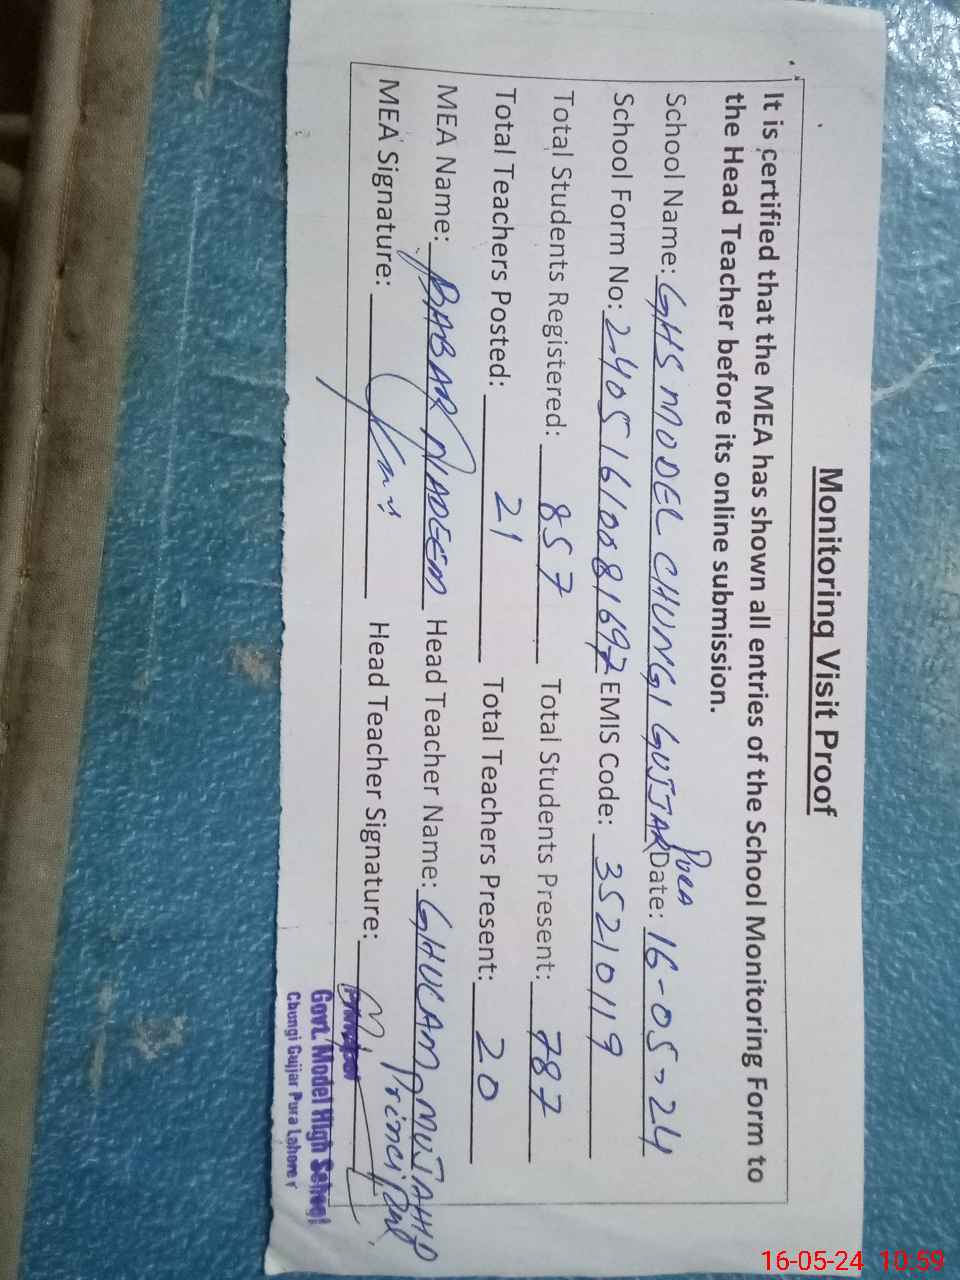 Monitoring Visit Proof
It is certified that the MEA has shown all entries of the School Monitoring Form to
the Head Teacher before its online submission.
School Name: GHS MODEL CHUNGI GUJJAR PURA Date: 16-05-24
School Form No: 24051610081697 EMIS Code: 35210119
Total Students Registered: 857 Total Students Present: 787
Total Teachers Posted: 21 Total Teachers Present: 20
MEA Name: BABAR NADEEM Head Teacher Name: GHULAM MUJAHID
Principal
MEA Signature: Head Teacher Signature:
Principal
Govt. Model High School
Chungi Gujjar Pura Lahore
16-05-24 10:59